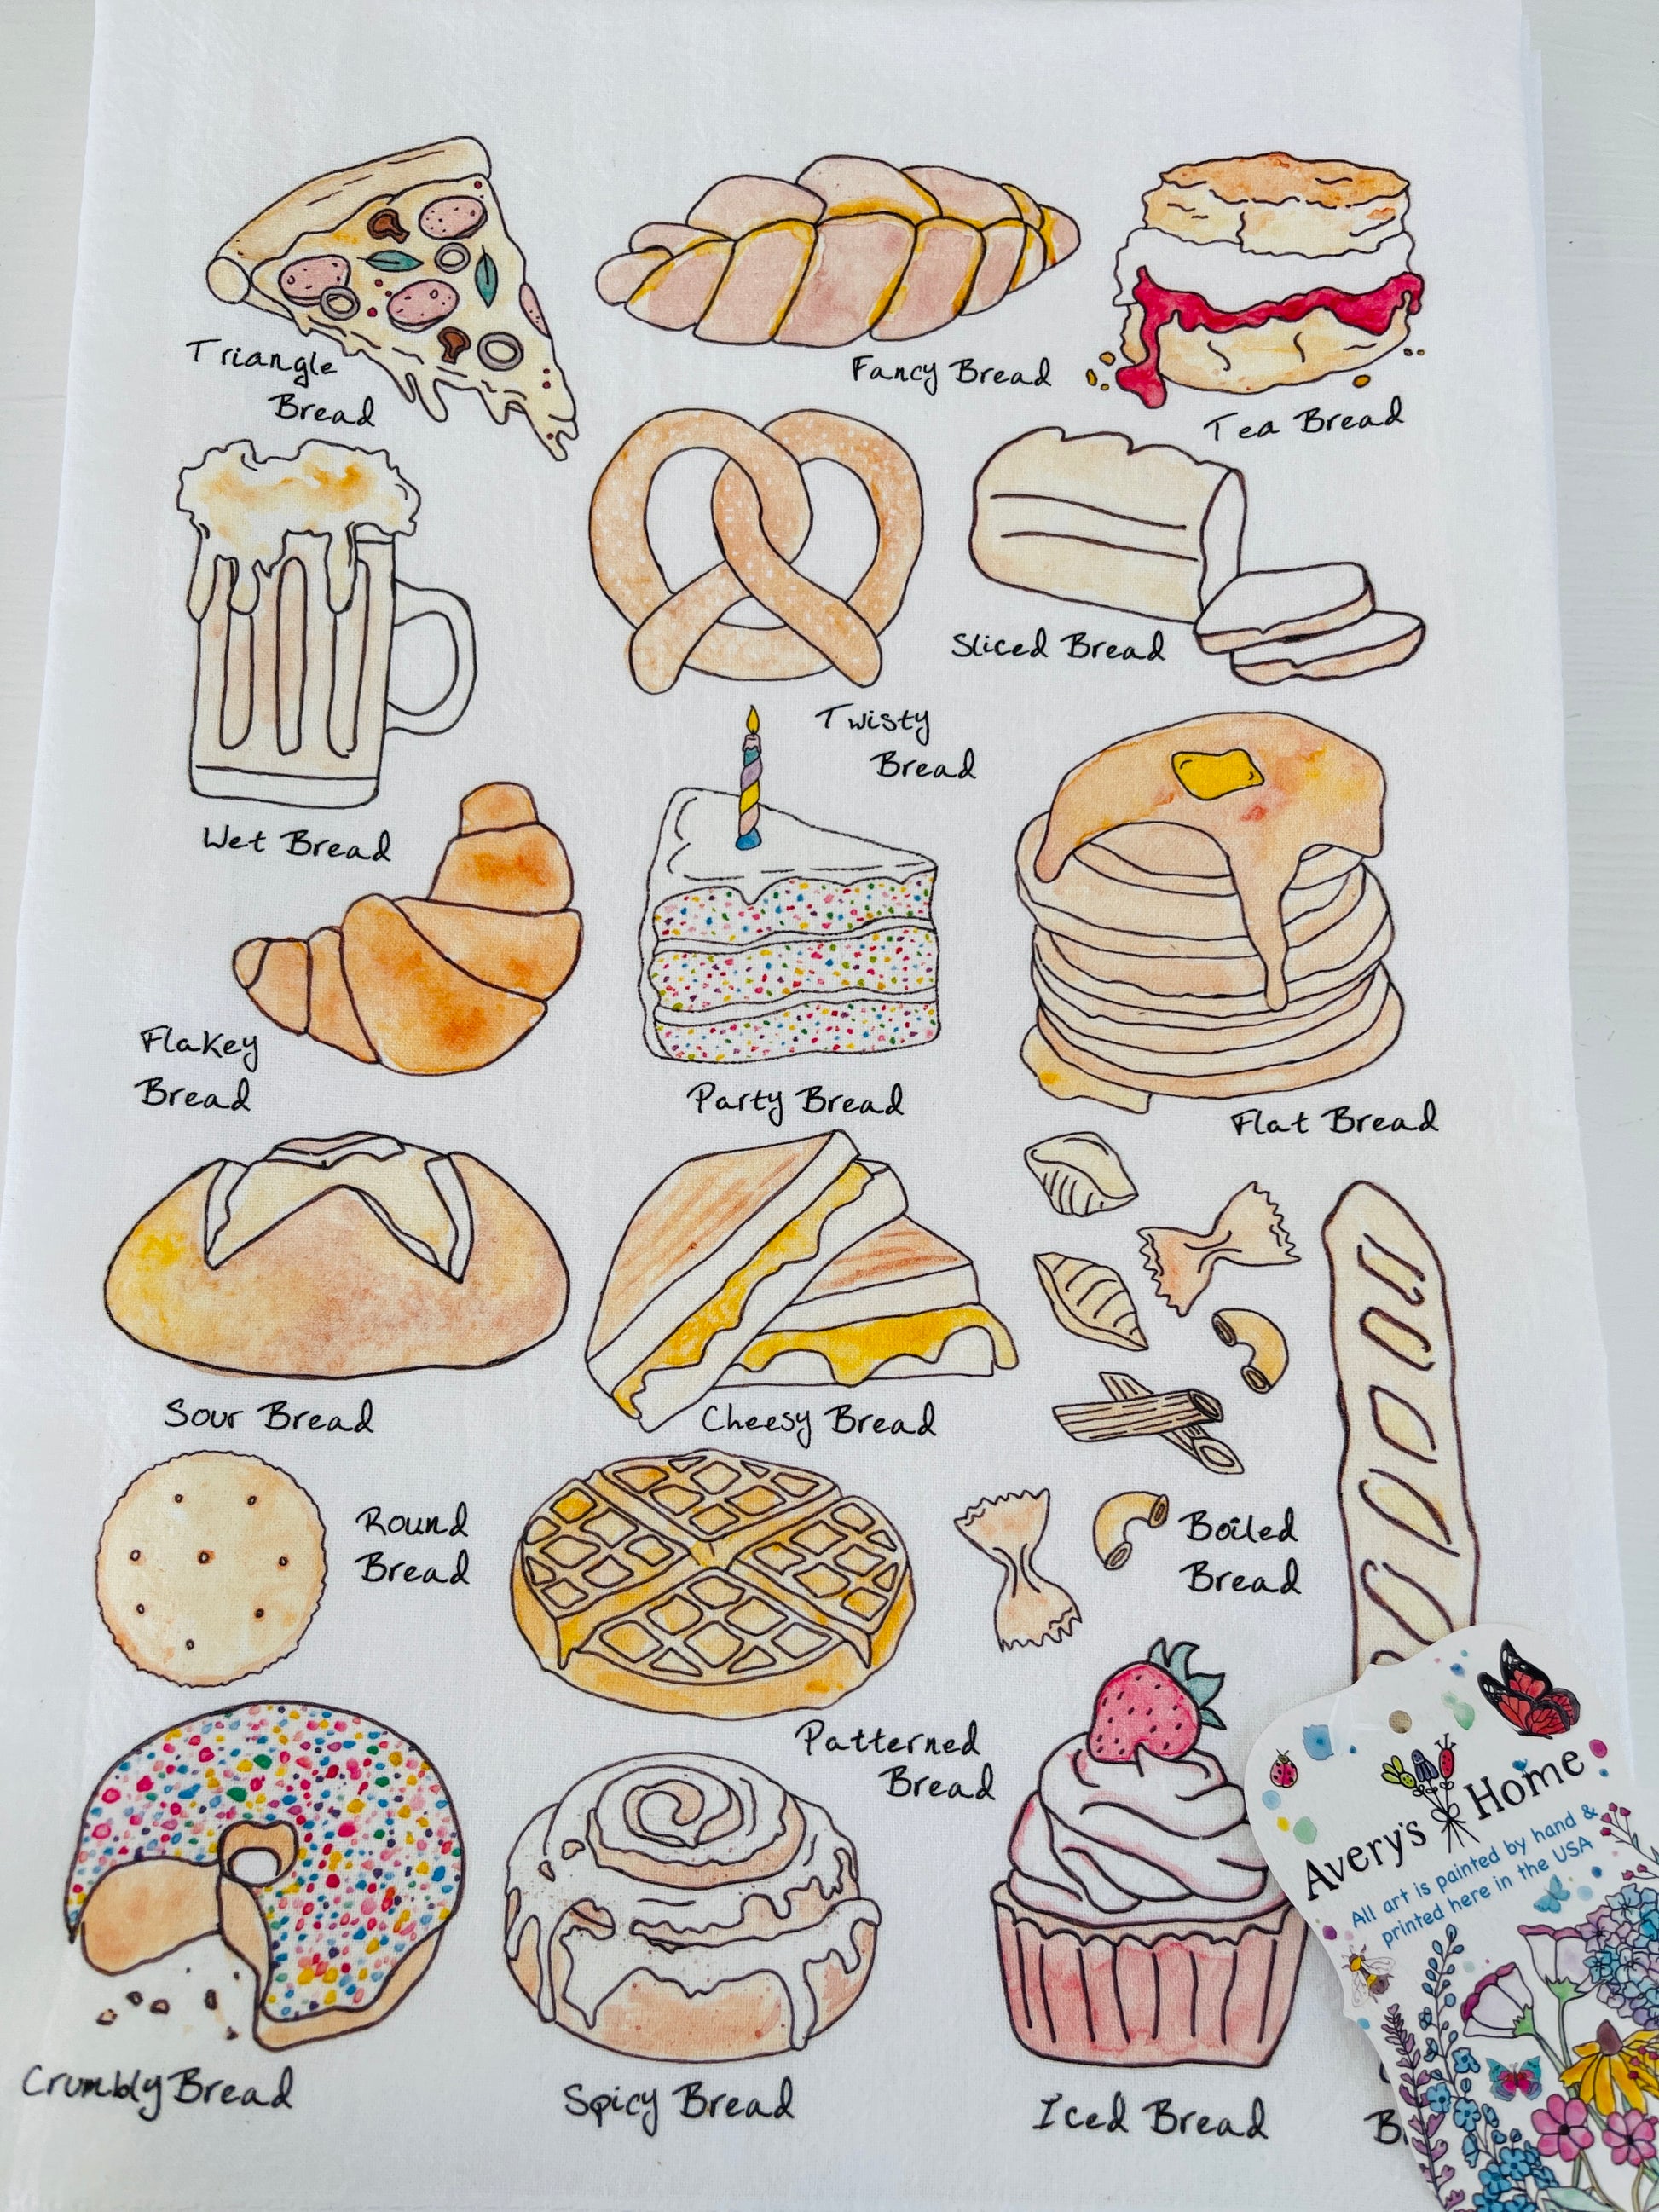 Triangle
Bread
Fancy Bread
Tea Bread
Wet Bread
Twisty
Bread
Sliced Bread
Flakey
Bread
Party Bread
Flat Bread
Sour Bread
Cheesy Bread
Round
Bread
Patterned
Bread
Boiled
Bread
Crumbly Bread
Spicy Bread
Iced Bread
Avery's Home
All art is painted by hand &
printed here in the USA